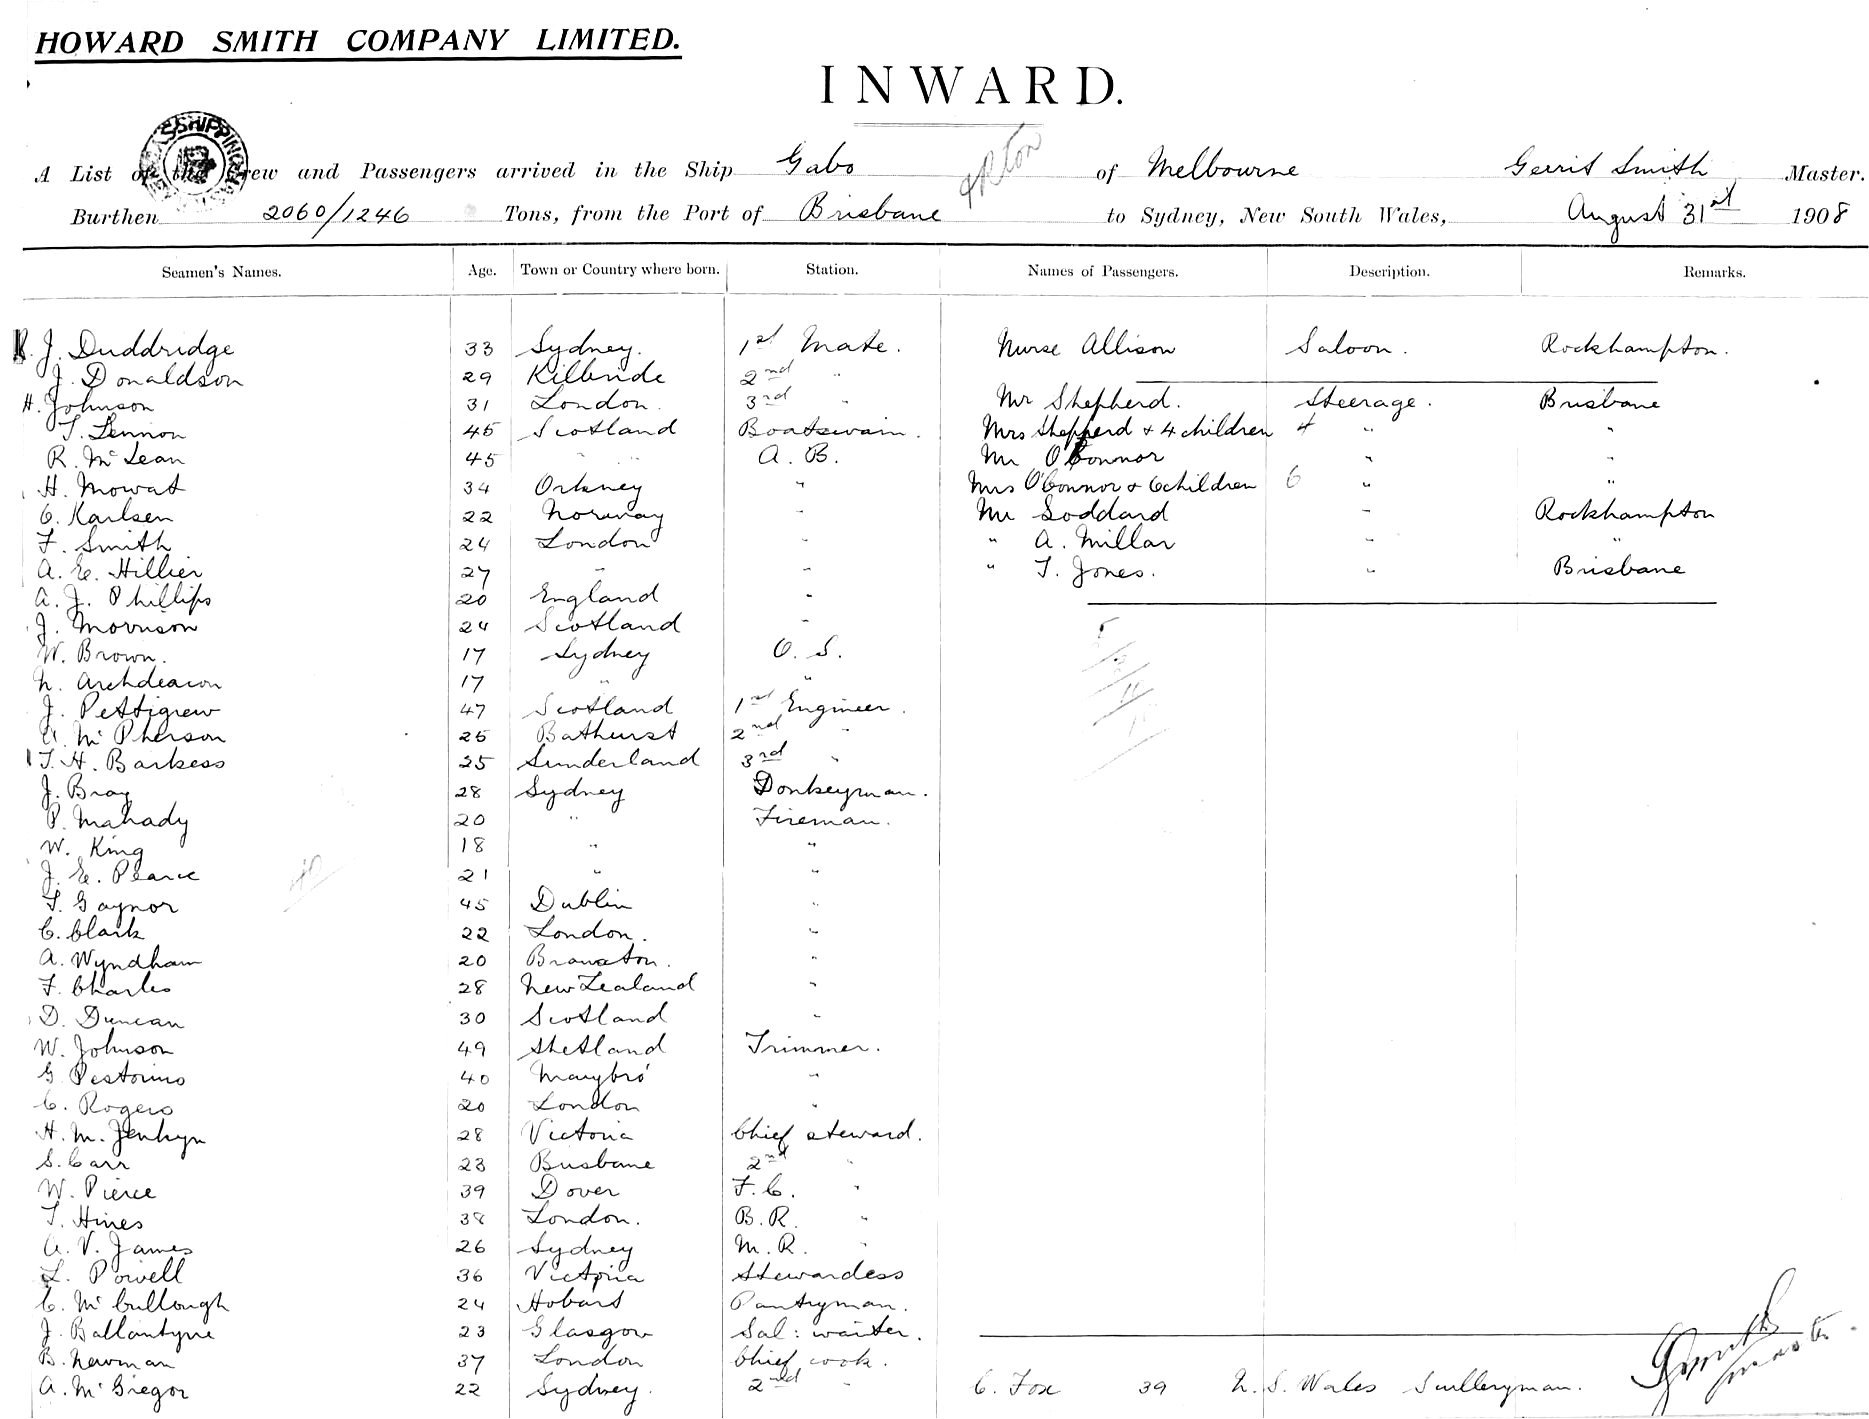 HOWARD SMITH COMPANY LIMITED.
INWARD.
A List of the Crew and Passengers arrived in the Ship Gabo of Melbourne Gerrit Smith Master.
Burthen 2060/1246 Tons, from the Port of Brisbane to Sydney, New South Wales, August 31st 1908
Seamen's Names. Age. Town or Country where born. Station. Names of Passengers. Description. Remarks.
J. Duddridge 33 Sydney. 1st Mate. Nurse Allison Saloon. Rockhampton.
J. Donaldson 29 Kilbride 2nd "
H. Johnson 31 London. 3rd " Mr Shepherd. Steerage. Brisbane
T. Lennon 45 Scotland Boatswain. Mrs Shepherd + 4 children 4 " "
R. McLean 45 " " A. B. Mr O'Connor " "
H. Mowat 34 Orkney " Mrs O'Connor + 6 children 6 " "
C. Karlsen 22 Norway " Mr Goddard " Rockhampton
F. Smith 24 London " " A. Millar " "
A. E. Hillier 27 " " " T. Jones. " Brisbane
A. J. Phillips 20 England "
J. Morrison 24 Scotland "
W. Brown. 17 Sydney O. S.
N. Archdeacon 17 " "
J. Pettigrew 47 Scotland 1st Engineer.
McPherson 25 Bathurst 2nd "
T. H. Barkess 25 Sunderland 3rd "
J. Bray 28 Sydney Donkeyman.
P. Mahady 20 " Fireman.
W. King 18 " "
J. E. Pearce 21 " "
T. Gaynor 45 Dublin "
C. Clark 22 London. "
A. Wyndham 20 Branxton. "
F. Charles 28 New Zealand "
D. Duncan 30 Scotland "
W. Johnson 49 Shetland Trimmer.
G Pestorino 40 Marybro' "
C. Rogers 20 London "
H. M. Jenkyn 28 Victoria Chief steward.
S. Carr 23 Brisbane 2nd "
W. Pierce 39 Dover F. C. "
T. Hines 38 London. B. R. "
A. V. James 26 Sydney M. R. "
L. Powell 36 Victoria Stewardess
C. McCullough 24 Hobart Pantryman.
J. Ballantyne 23 Glasgow Sal: waiter.
B. Newman 37 London Chief cook.
A. McGregor 22 Sydney. 2nd " C. Fox 39 N. S. Wales Sculleryman.